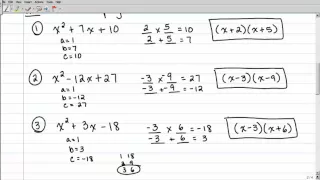 ① x² + 7x + 10
a=1
b=7
c=10
2 × 5 = 10
2 + 5 = 7
(x+2)(x+5)
② x² - 12x + 27
a=1
b=-12
c=27
-3 × -9 = 27
-3 + -9 = -12
(x-3)(x-9)
③ x² + 3x - 18
a=1
b=3
c=-18
-3 × 6 = -18
-3 + 6 = 3
(x-3)(x+6)
1 18
3 6